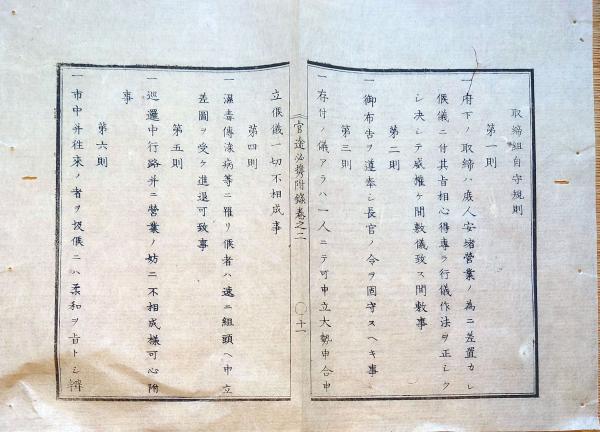 取締組自守規則
第一則
一府下ノ取締ハ庶人安堵營業ノ為ニ差置カレ
候儀ニ付其旨相心得専ラ行儀作法ヲ正シク
シ決シテ威權ケ間敷儀致ス間敷事
第二則
一御布告ヲ遵奉シ長官ノ令ヲ固守スヘキ事
第三則
一存付ノ儀アラハ一人ニテ可申立大勢申合申
官途必携附錄卷之二
〇十一
立候儀一切不相成事
第四則
一濕毒傳染病等ニ罹リ候者ハ速ニ組頭ヘ申立
差圖ヲ受ケ進退可致事
第五則
一巡邏中行路并ニ營業ノ妨ニ不相成様可心附
事
第六則
一市中并往來ノ者ヲ扱候ニハ柔和ヲ旨トシ